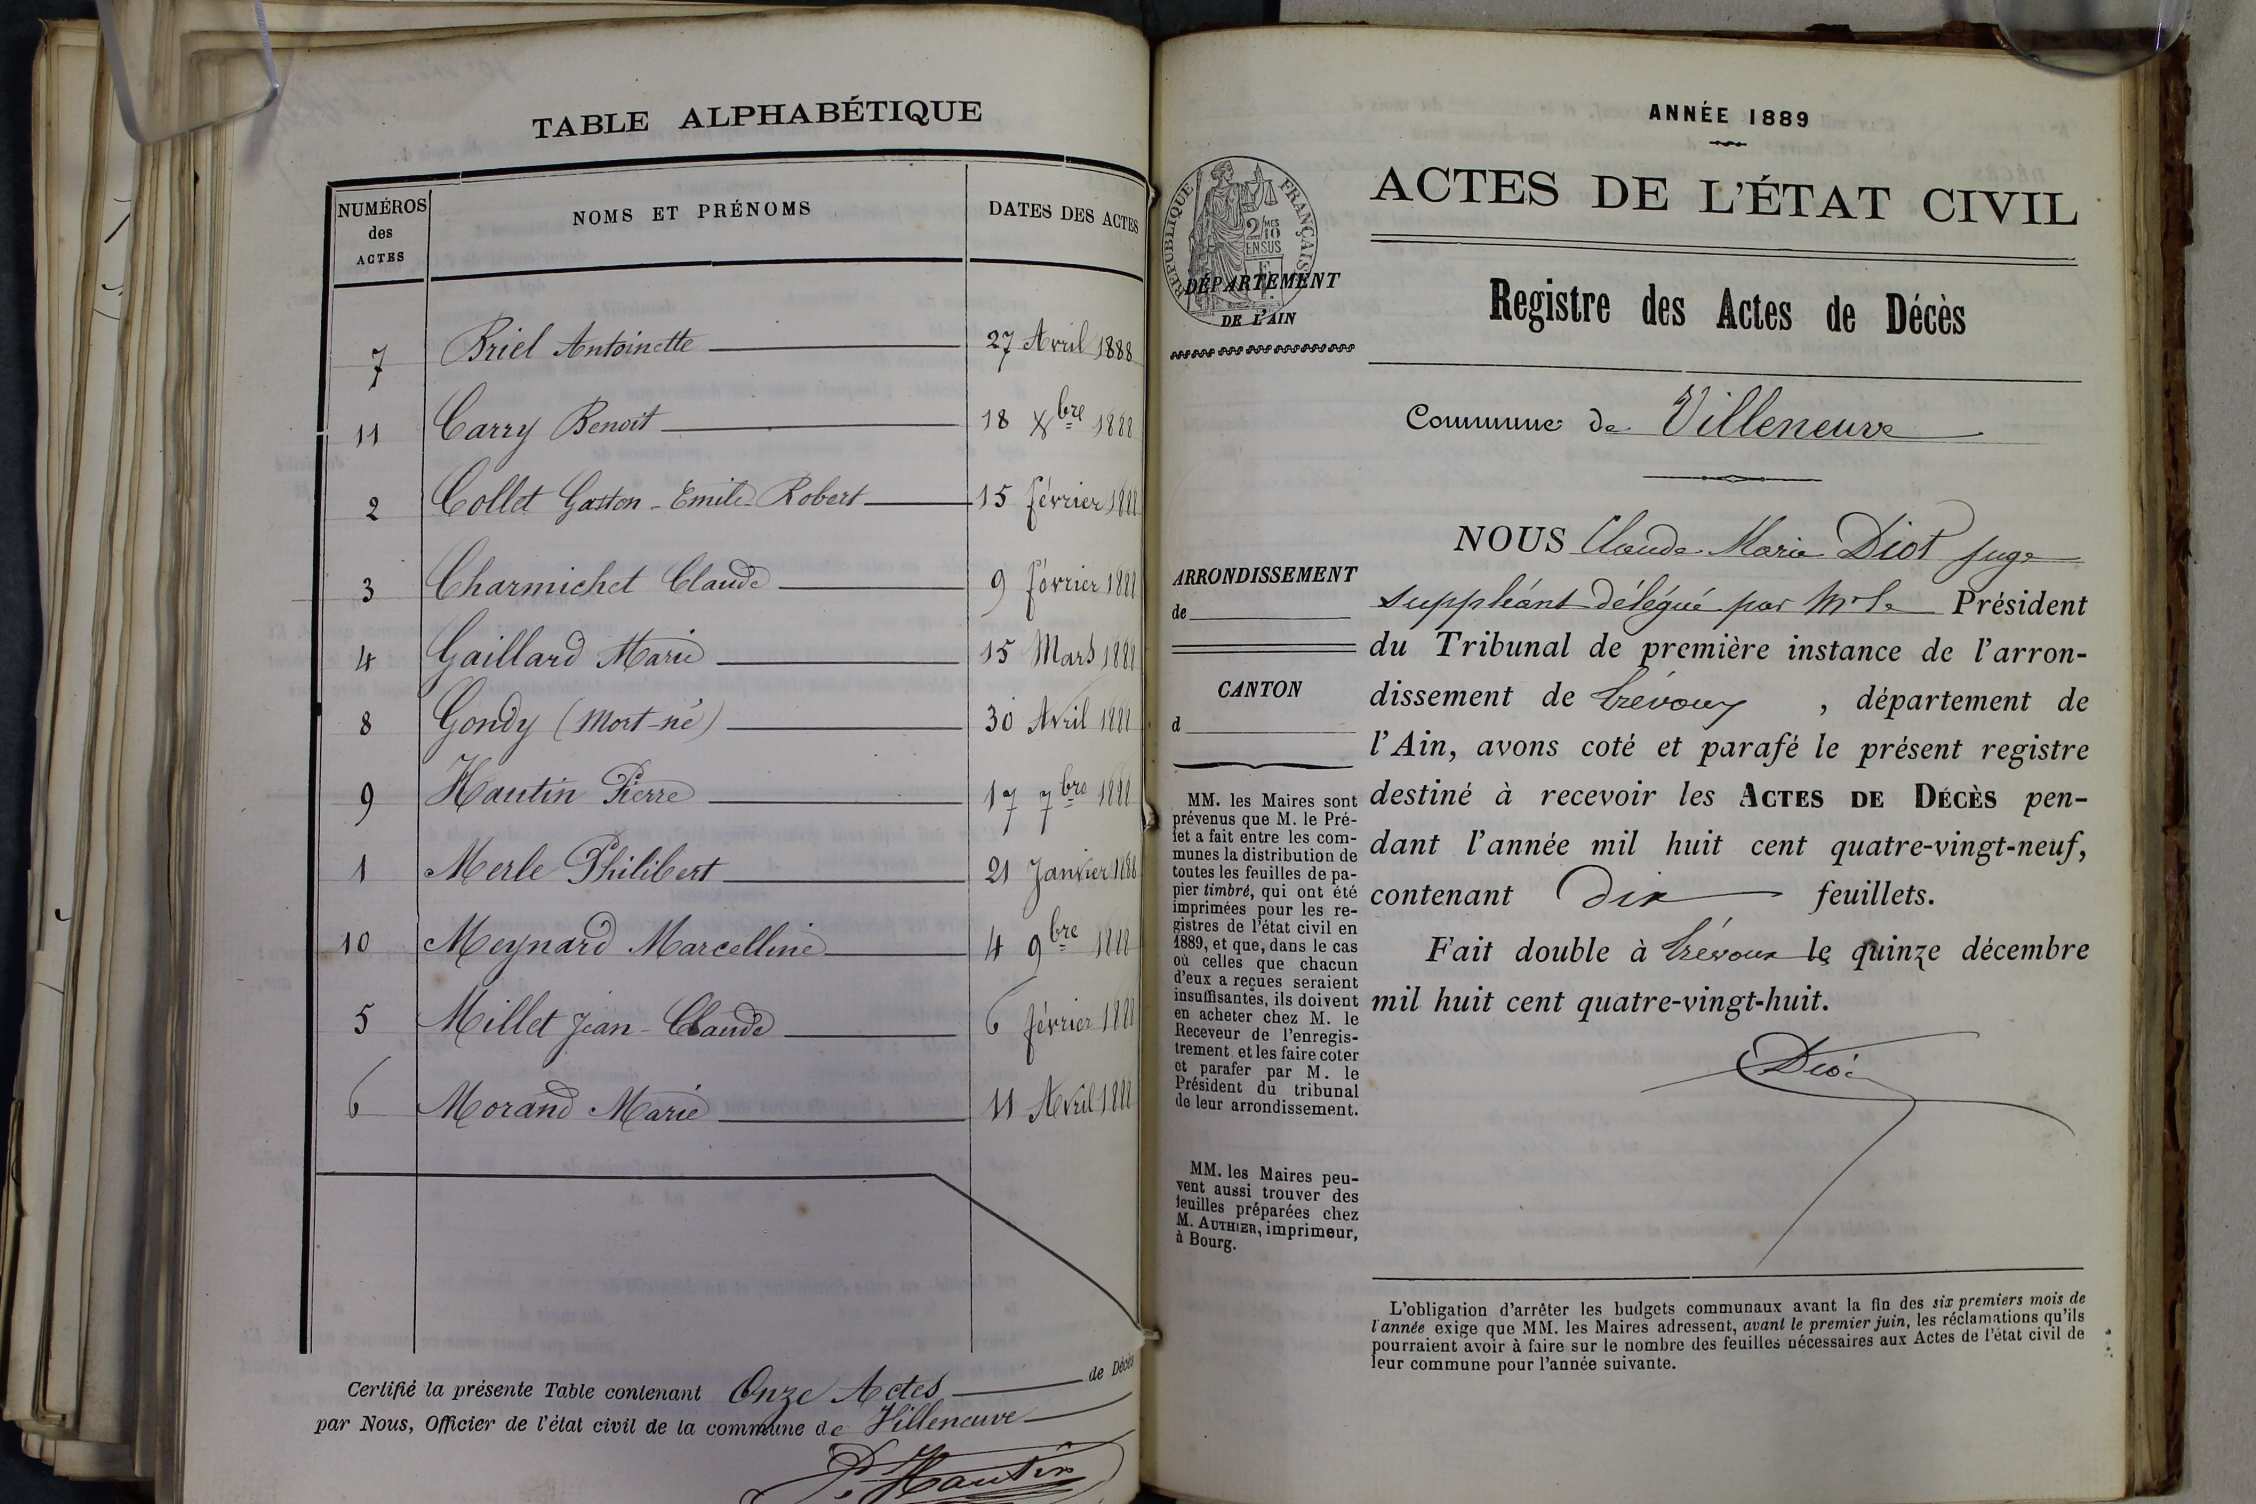 TABLE ALPHABÉTIQUE
NUMÉROS des ACTES
NOMS ET PRÉNOMS
DATES DES ACTES
7 Briel Antoinette 27 Avril 1888
11 Carry Benoit 18 Xbre 1888
2 Collet Gaston - Emile - Robert 15 février 1888
3 Charmichet Claude 9 février 1888
4 Gaillard Marie 15 Mars 1888
8 Gondy (Mort-né) 30 Avril 1888
9 Hautin Pierre 17 7bre 1888
1 Merle Philibert 21 Janvier 1888
10 Meynard Marcelline 4 9bre 1888
5 Millet Jean - Claude 6 février 1888
6 Morand Marie 11 Avril 1888
Certifié la présente Table contenant Onze Actes de Décès
par Nous, Officier de l'état civil de la commune de Villeneuve
P. Hautin
ANNÉE 1889
RÉPUBLIQUE FRANÇAISE
2/10 MES
EN SUS
DÉPARTEMENT
DE L'AIN
ACTES DE L'ÉTAT CIVIL
Registre des Actes de Décès
Commune de Villeneuve
ARRONDISSEMENT
de
CANTON
d
MM. les Maires sont
prévenus que M. le Pré-
fet a fait entre les com-
munes la distribution de
toutes les feuilles de pa-
pier timbré, qui ont été
imprimées pour les re-
gistres de l'état civil en
1889, et que, dans le cas
où celles que chacun
d'eux a reçues seraient
insuffisantes, ils doivent
en acheter chez M. le
Receveur de l'enregis-
trement et les faire coter
et parafer par M. le
Président du tribunal
de leur arrondissement.
MM. les Maires peu-
vent aussi trouver des
feuilles préparées chez
M. AUTHIER, imprimeur,
à Bourg.
NOUS Claude Marie Diot juge
suppléant délégué par Mr le Président
du Tribunal de première instance de l'arron-
dissement de Trévoux , département de
l'Ain, avons coté et parafé le présent registre
destiné à recevoir les ACTES DE DÉCÈS pen-
dant l'année mil huit cent quatre-vingt-neuf,
contenant Dix feuillets.
Fait double à Trévoux le quinze décembre
mil huit cent quatre-vingt-huit.
Diot
L'obligation d'arrêter les budgets communaux avant la fin des six premiers mois de
l'année exige que MM. les Maires adressent, avant le premier juin, les réclamations qu'ils
pourraient avoir à faire sur le nombre des feuilles nécessaires aux Actes de l'état civil de
leur commune pour l'année suivante.